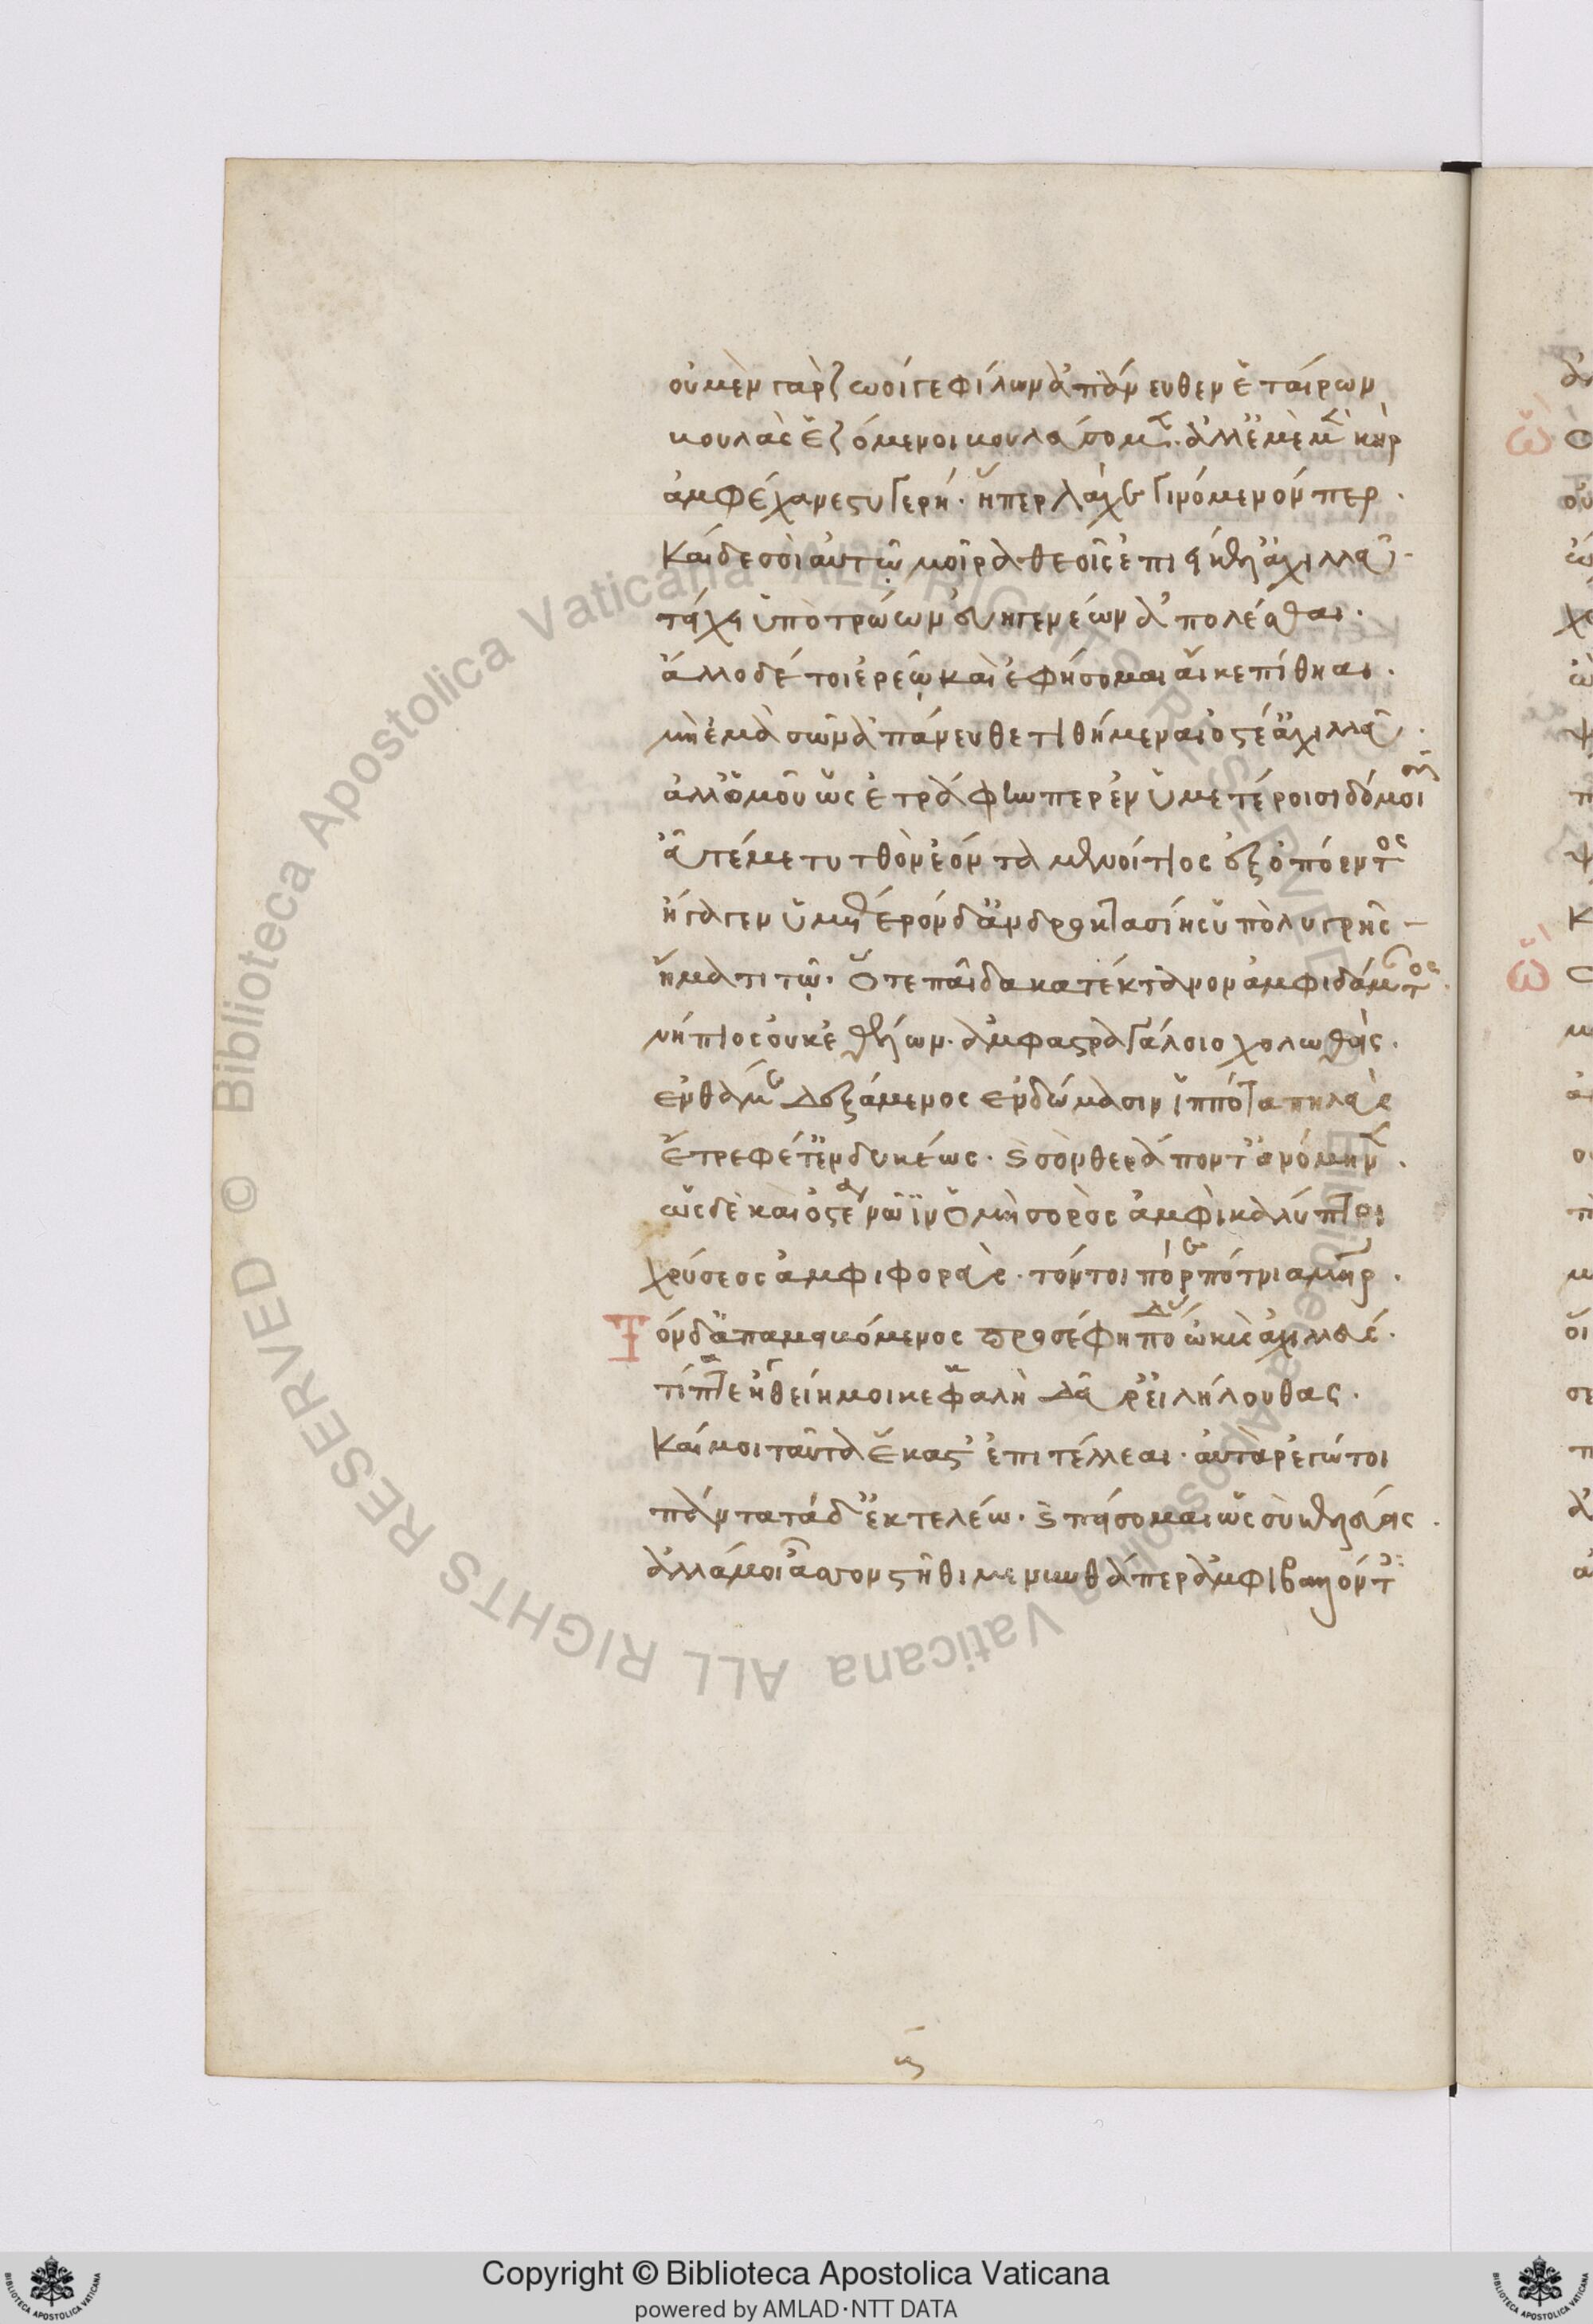 οὐ μὲν γὰρ ζωοί γε φίλων ἀπάνευθεν ἑταίρων
βουλὰς ἑζόμενοι βουλεύσομεν. ἀλλ' ἐμὲ μὲν κὴρ
ἀμφέχανε στυγερή. ἥπερ λάχε γινόμενόν περ.
Καὶ δὲ σοὶ αὐτῷ μοῖρα. θεοῖς ἐπιείκελ' ἀχιλλεῦ.
τείχει ὑπὸ τρώων εὐηγενέων ἀπολέσθαι.
ἄλλο δέ τοι ἐρέω καὶ ἐφήσομαι αἴ κε πίθηαι.
μὴ ἐμὰ σῶν ἀπάνευθε τιθήμεναι ὀστέ' ἀχιλλεῦ.
ἀλλ' ὁμοῦ ὡς ἐτράφην περ ἐν ὑμετέροισι δόμοισιν
εὖτέ με τυτθὸν ἐόντα μενοίτιος ἐξ ὀπόεντος
ἤγαγεν ὑμέτερόνδ' ἀνδροκτασίης ὕπο λυγρῆς
ἤματι τῷ. ὅτε παῖδα κατέκτανον ἀμφιδάμαντος.
νήπιος οὐκ ἐθέλων. ἀμφ' ἀστραγάλοισι χολωθείς.
ἔνθά με δεξάμενος ἐν δώμασιν ἱππότα πηλεὺς
ἔτρεφέ τ' ἐνδυκέως. καὶ σὸν θεράποντ' ὀνόμηνεν.
ὣς δὲ καὶ ὀστέα νῶϊν ὁμὴ σορὸς ἀμφικαλύπτοι
χρύσεος ἀμφιφορεύς. τόν τοι πόρε πότνια μήτηρ.
Τὸν δ' ἀπαμειβόμενος προσέφη πόδας ὠκὺς ἀχιλλεύς.
τίπτέ μοι ἠθείη κεφαλὴ δεῦρ' εἰλήλουθας.
Καί μοι ταῦτα ἕκαστ' ἐπιτέλλεαι. αὐτὰρ ἐγώ τοι
πάντα τάδ' ἐκτελέω. καὶ πείσομαι ὡς σὺ κελεύεις.
ἀλλά μοι ἆσσον στῆθι μίνυνθά περ ἀμφιβαλόντε